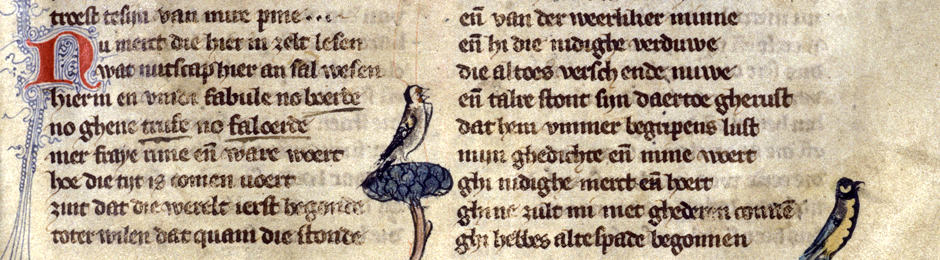 troest tesijn van mire pine...
Nu merct die hier in zelt lesen
wat nutscap hier an sal wesen
hierin en vindi fabule no boerde
no ghene trufe no faloerde
mer fraye rime en̄ ware woert
hoe die tijt is comen voert
zint dat die werelt ierst begonde
toter wilen dat quam die stonde
en̄ van der weerliker minne
en̄ hi die nidighe verduwe
die altoes versch ende nuwe
en̄ talre stont sijn daertoe gherust
dat hem vmmer begripens lust
mijn ghedichte en̄ mine woert
ghi nidighe merct en̄ hoert
ghi ne zult mi met ghederen connē
ghi hebbes alte spade begonnen